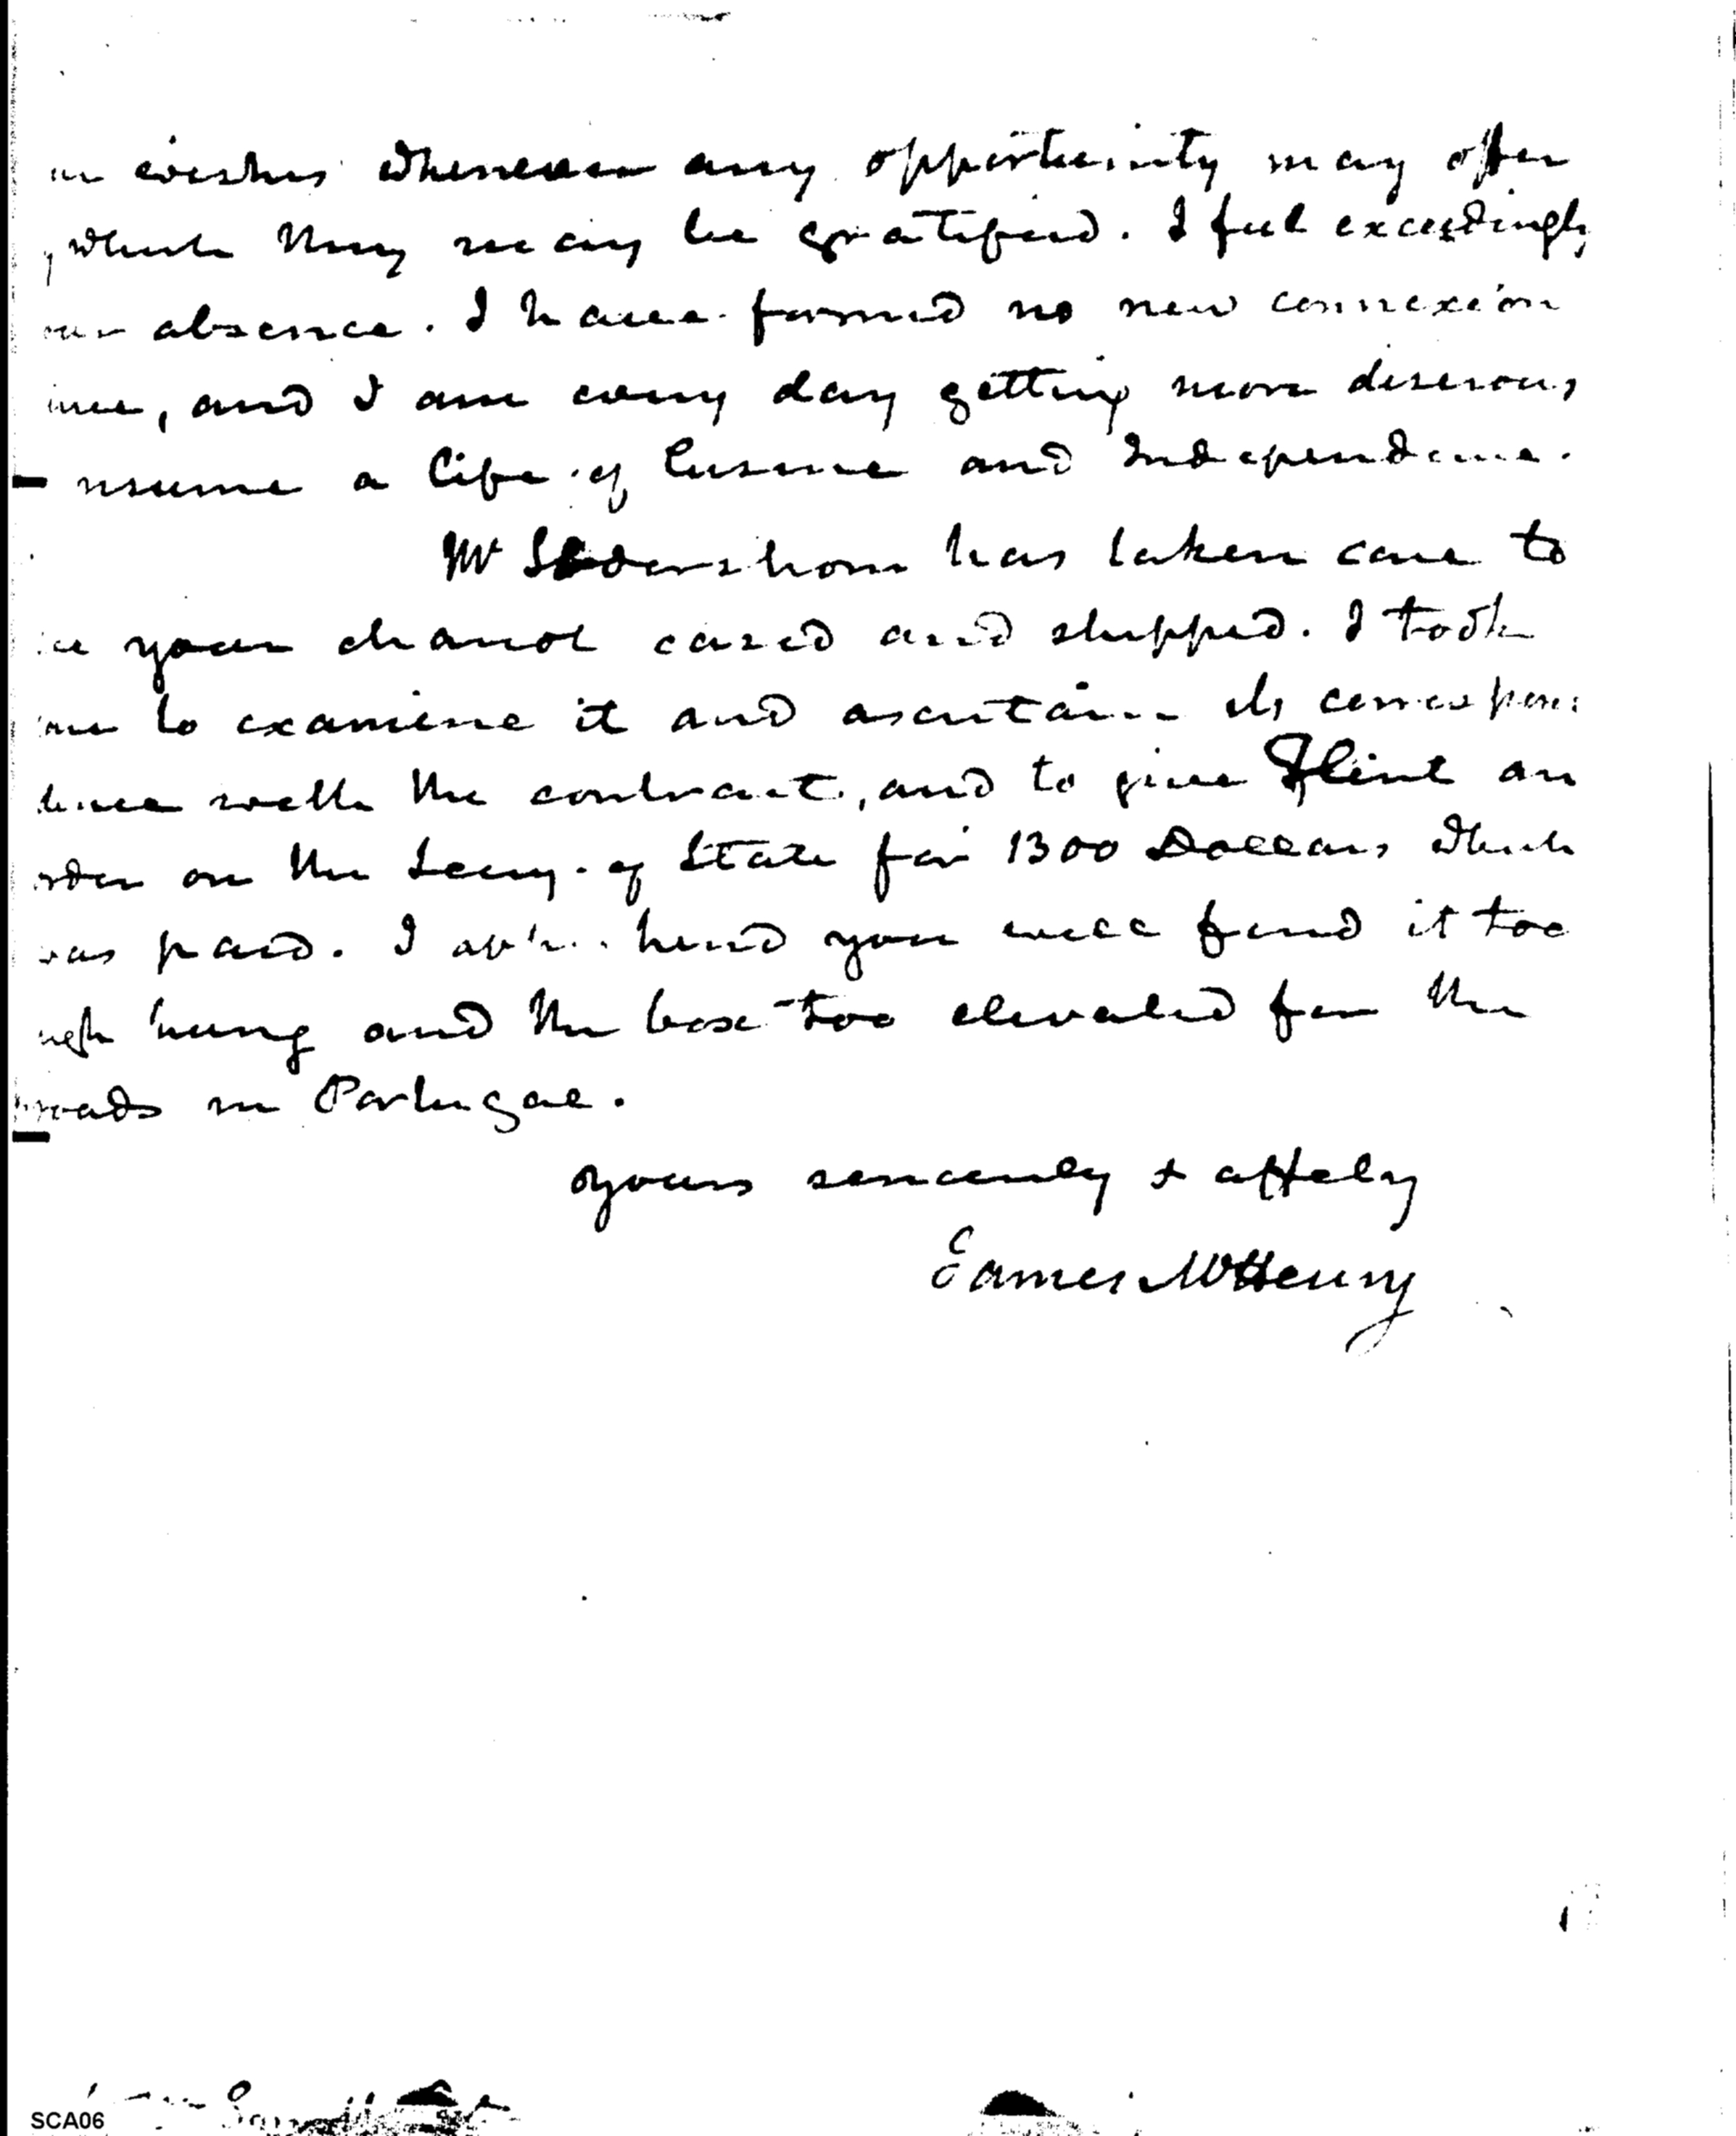 wishes whenever any opportunity may offer
which they may be gratified. I feel exceedingly
absence. I have formed no new connexion
and I am every day getting more diserous
resume a life of leisure and Independence.
Mr has taken care to
your chariot cased and shipped. I took
to examine it and ascertain its correspon:
dence with the contract, and to give Flint an
order on the Secry. of State for 1300 Dollars which
was paid. I apprehend you will find it too
high hung and the box too elevated for the
roads in Portugal.
yours sincerely & affely
James McHenry
SCA06